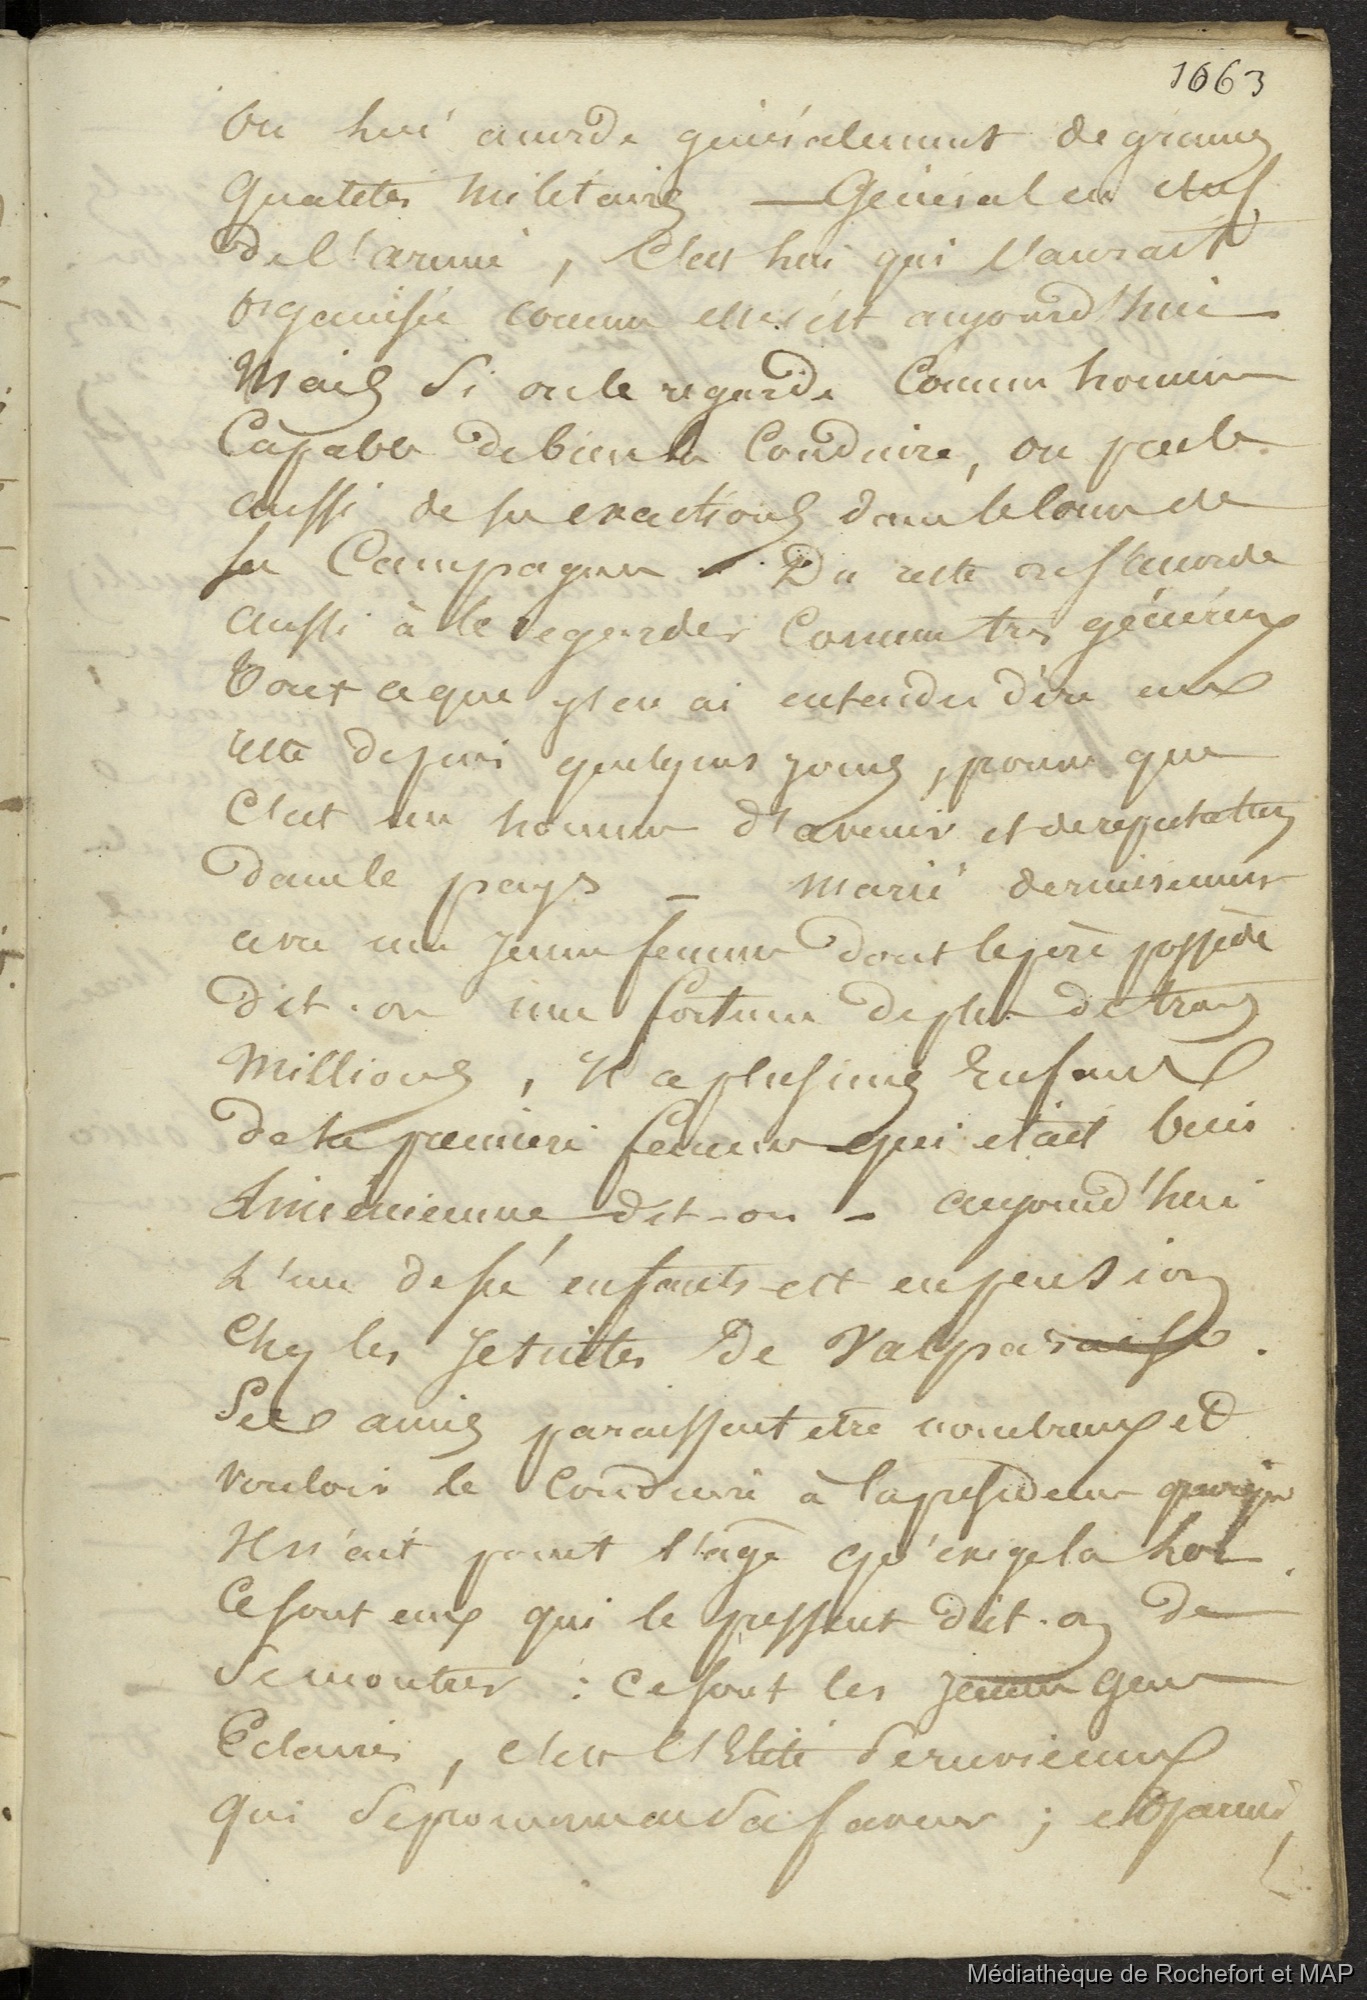 1663
On lui accorde généralement de grands
qualités militaires — Général en chef
de l'armée, c'est lui qui l'aurait
organisée comme elle est aujourd'hui
Mais si on le regarde comme homme
capable de bien la conduire, on parle
aussi de ses exactions dans le cours de
sa campagne. Du reste on s'accorde
aussi à le regarder comme très généreux
Tout ce que j'en ai entendu dire
reste depuis quelques jours, prouve que
c'est un homme d'avenir et de réputation
dans le pays — Marié dernièrement
avec une jeune femme dont le père possède
dit-on une fortune de plus de trois
millions, il a plusieurs Enfants
de sa première femme qui était
dit-on — aujourd'hui
L'un de ses enfants est en pension
chez les Jesuites de Valparaiso.
Ses amis paraissent etre nombreux et
vouloir le conduire à la présidence quoique
il n'ait point l'age qu'exige la Loi.
Ce sont eux qui le pressent dit-on de
se montrer : ce sont les jeunes gens
Eclairés, c'est l'Elite Peruvienne
qui se prononce en sa faveur ; et parmi
Médiathèque de Rochefort et MAP